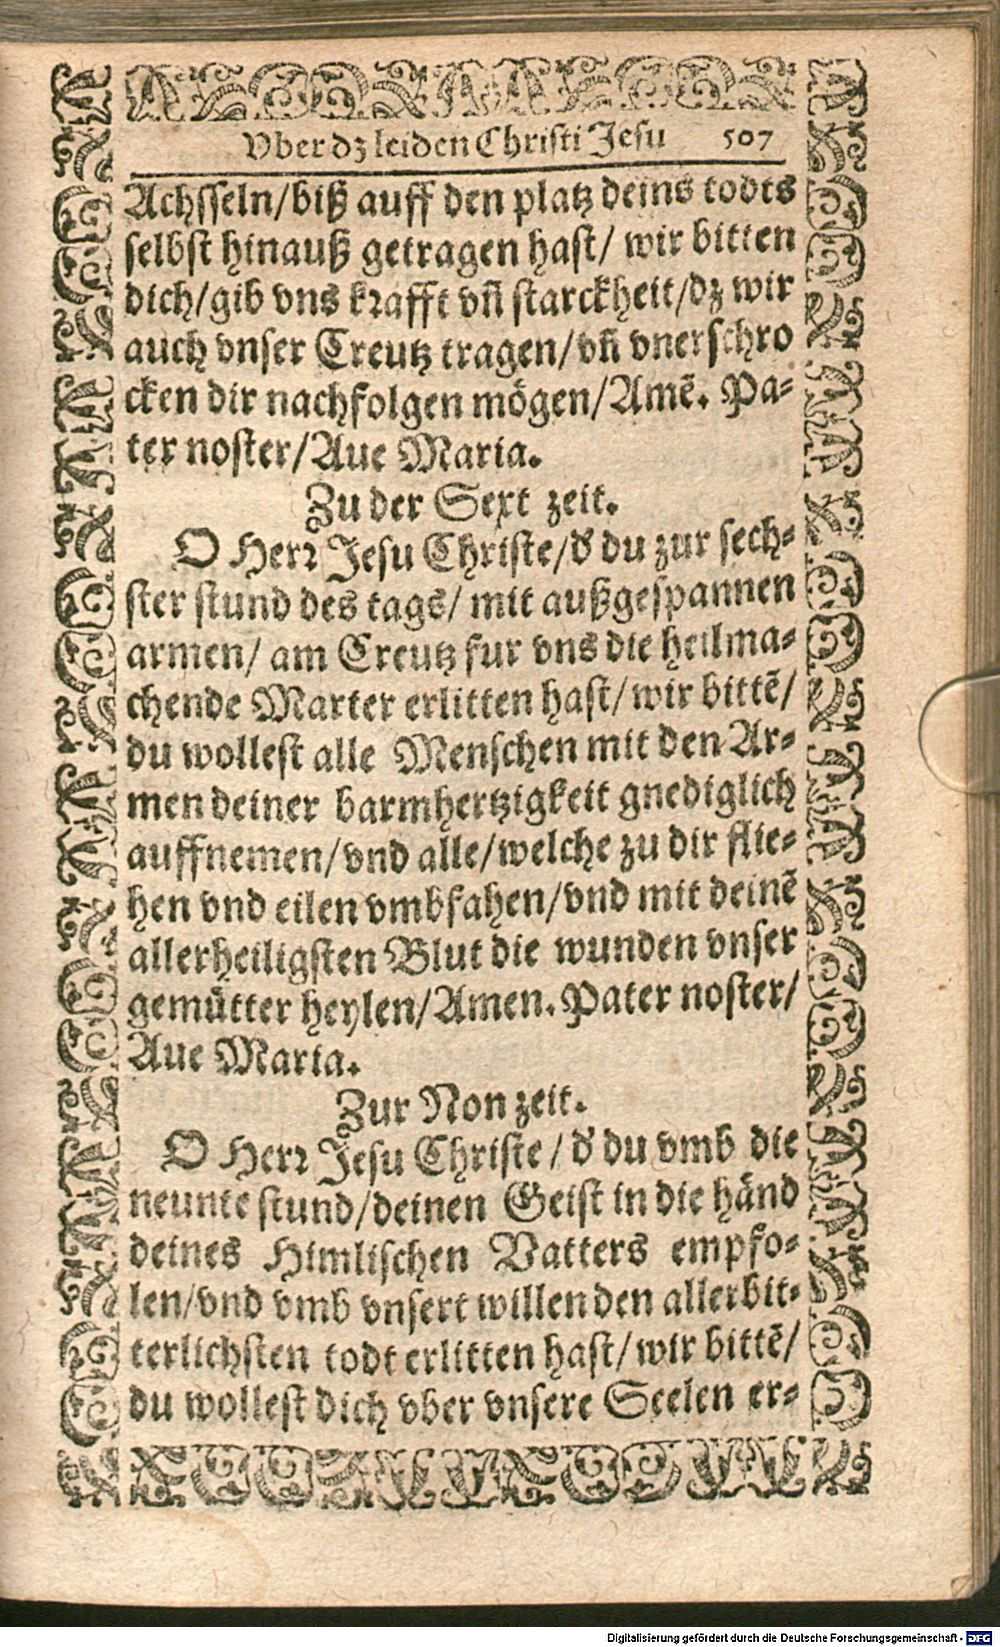 Vber dz leiden Christi Jesu 507
Achsseln/biß auff den platz deins todts
selbst hinauß getragen hast/ wir bitten
dich/gib vns krafft vñ starckheit/dz wir
auch vnser Creutz tragen/vñ vnerschro
cken dir nachfolgen mögen/Amẽ. Pa-
ter noster/Aue Maria.
Zu der Sext zeit.
O Herr Jesu Christe/d' du zur sech-
ster stund des tags/ mit außgespannen
armen/ am Creutz fur vns die heilma-
chende Marter erlitten hast/wir bittẽ/
du wollest alle Menschen mit den Ar-
men deiner barmhertzigkeit gnediglich
auffnemen/vnd alle/welche zu dir flie-
hen vnd eilen vmbfahen/vnd mit deinẽ
allerheiligsten Blut die wunden vnser
gemütter heylen/Amen. Pater noster/
Aue Maria.
Zur Non zeit.
O Herr Jesu Christe/d' du vmb die
neunte stund/deinen Geist in die händ
deines Himlischen Vatters empfo-
len/vnd vmb vnsert willen den allerbit-
terlichsten todt erlitten hast/wir bittẽ/
du wollest dich vber vnsere Seelen er-
Digitalisierung gefördert durch die Deutsche Forschungsgemeinschaft - DFG